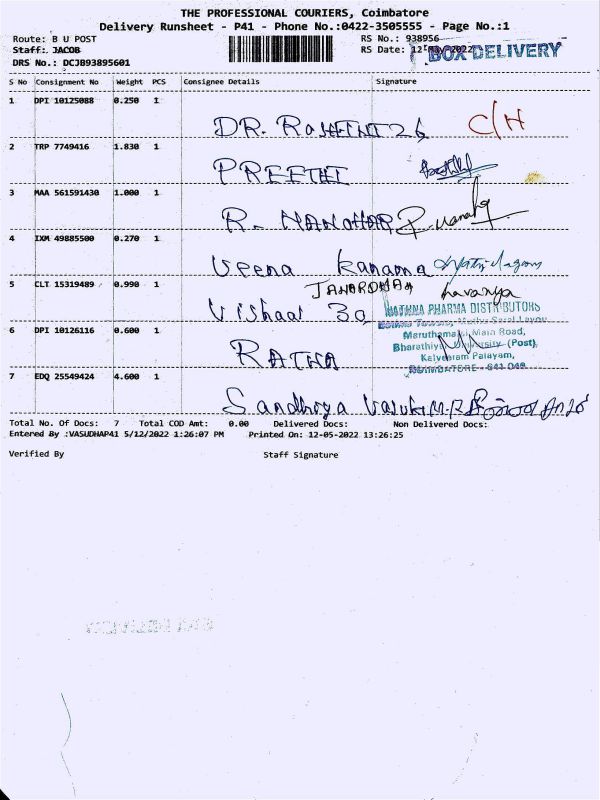 THE PROFESSIONAL COURIERS, Coimbatore
Delivery Runsheet - P41 - Phone No.:0422-3505555 - Page No.:1
Route: B U POST RS No.: 938956
Staff: JACOB RS Date: 12 May 2022 BOX DELIVERY
DRS No.: DCJB93895601
S No Consignment No Weight PCS Consignee Details Signature
1 DPI 10125088 0.250 1
DR. C/H
2 TRP 7749416 1.830 1
PREETHI
3 MAA 561591430 1.000 1
R. MANOHAR R. Manoha
4 IXM 49885500 0.270 1
Veena
5 CLT 15319489 0.990 1 JANARDHAN Lavanya
Vishaal 30 RATHNA PHARMA DISTRIBUTORS
6 DPI 10126116 0.600 1 Main Road,
RATHA (Post),
Palayam,
COIMBATORE - 641 046
7 EDQ 25549424 4.600 1
Sandhiya
Total No. Of Docs: 7 Total COD Amt: 0.00 Delivered Docs: Non Delivered Docs:
Entered By :VASUDHAP41 5/12/2022 1:26:07 PM Printed On: 12-05-2022 13:26:25
Verified By Staff Signature